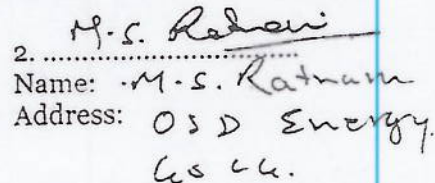 2. M.S. Ratnam
Name: M.S. Ratnam
Address: OSD Energy.